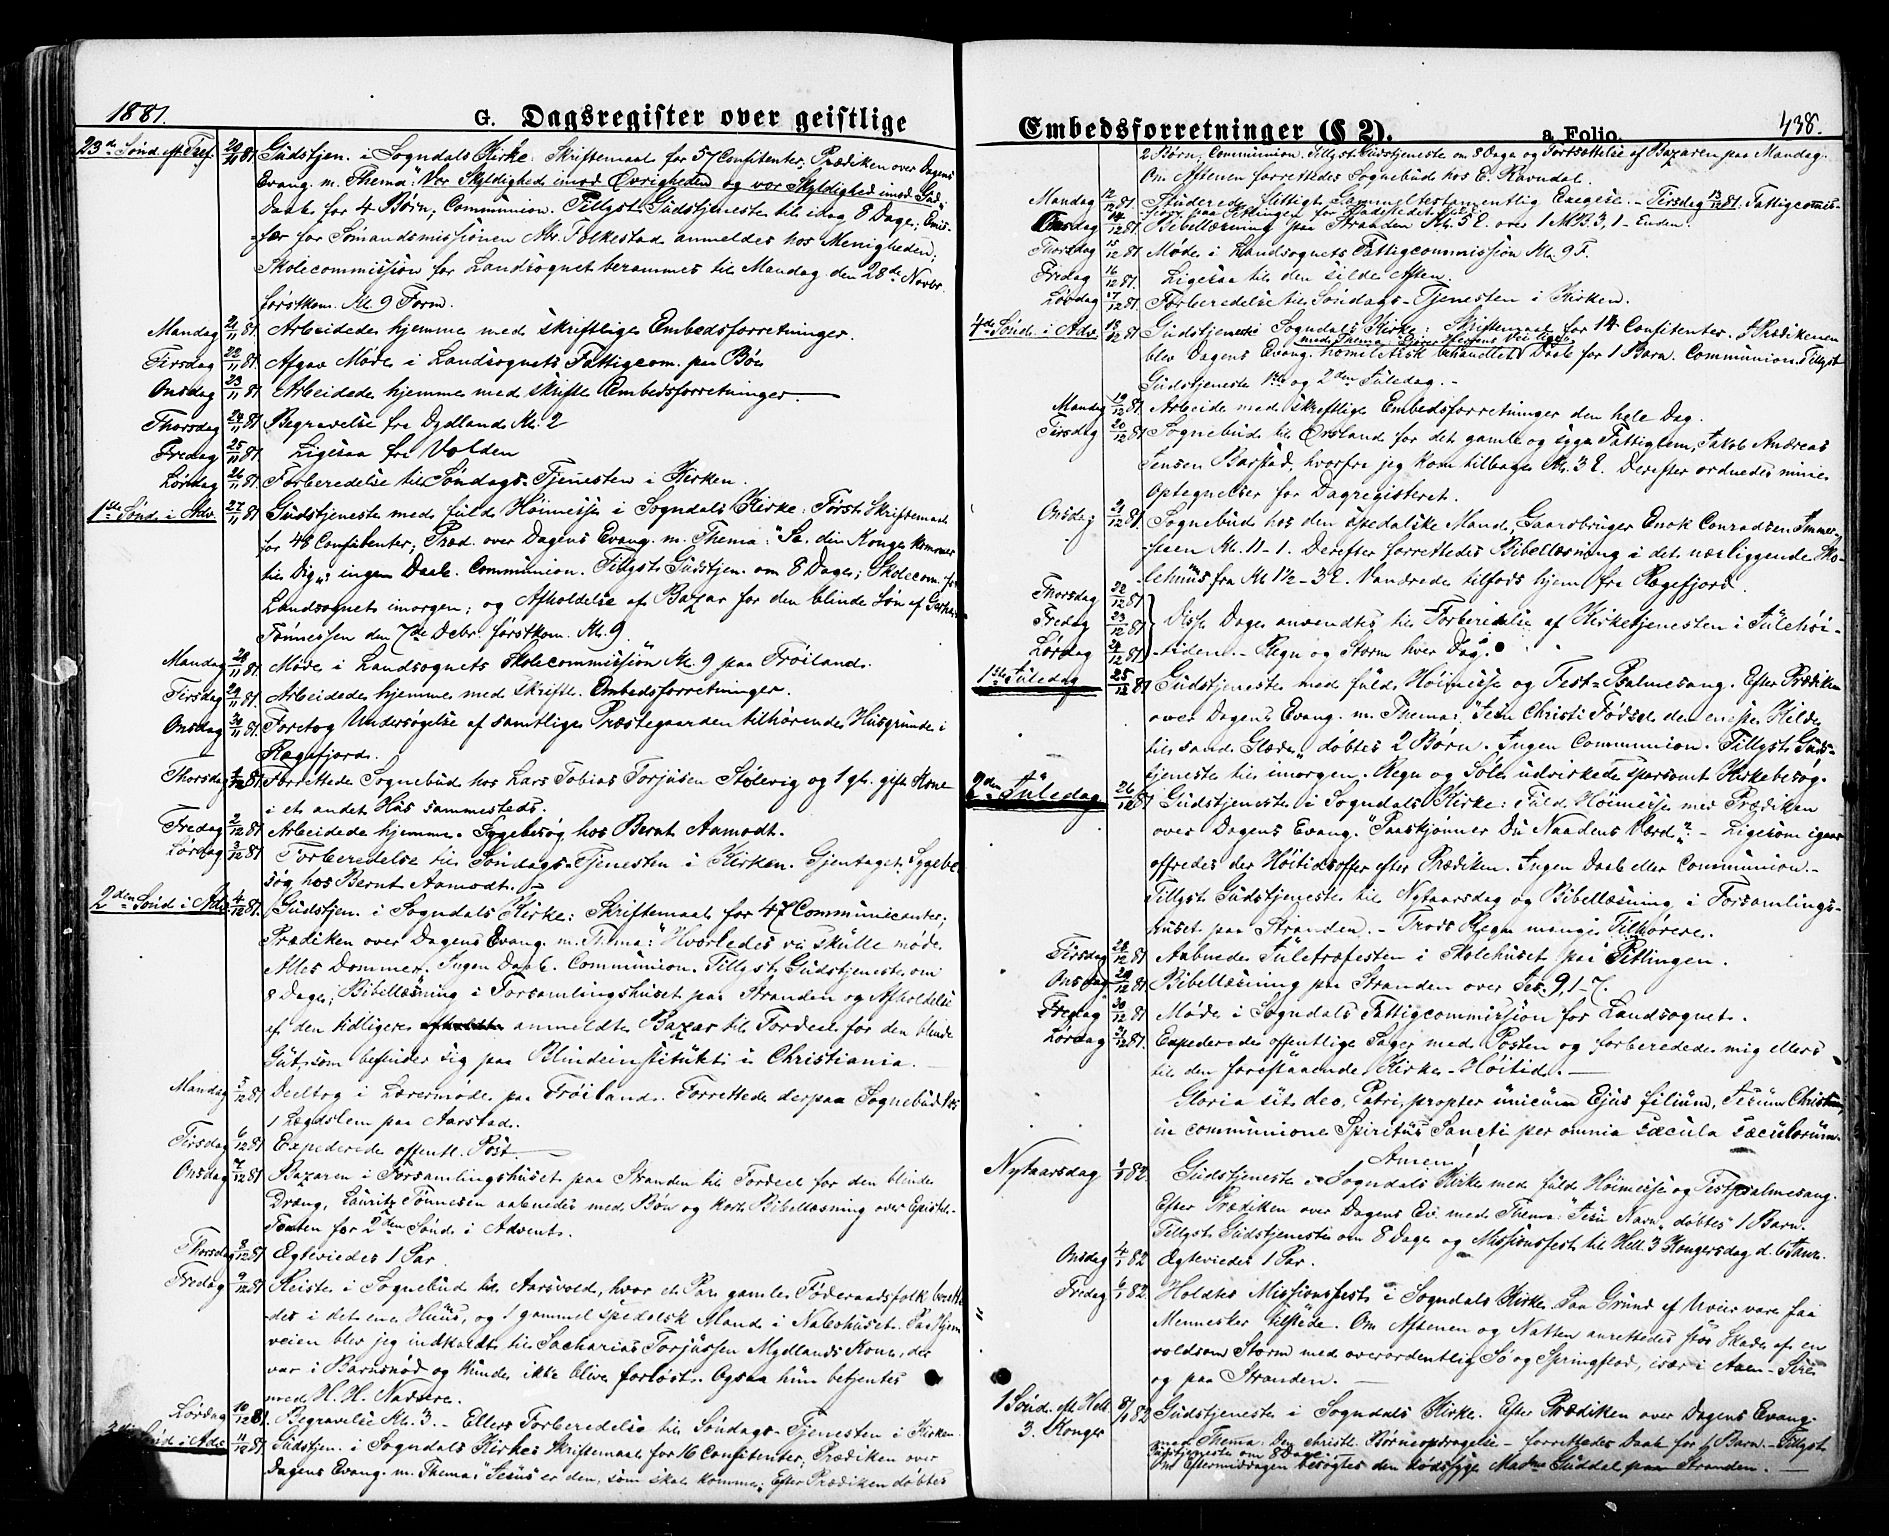 1881.
G. Dagsregister over geistlige
23de Sønd. eft. Tref. 20/11 81. Gudstjen. i Sogndals Kirke: Skriftemaal for 57 Confitenter, Prædiken over Dagens
Evang. m. Thema: "Vor Skyldighed imod Øvrigheden og vor Skyldighed imod Gud";
Daab for 4 Børn, Communion. Tillyst Gudstjeneste til idag 8 Dage; Emis-
sær for Sømandsmissionen Abr. Folkestad anmeldes hos Menigheden;
Skolecommission for Landsognet berammes til Mandag den 28de Novbr.
førstkom. Kl. 9 Form.
Mandag 21/11 81. Arbeidede hjemme med skriftlige Embedsforretninger.
Tirsdag 22/11 81. Afgav Møde i Landsognets Fattigcom. paa Bøe
Onsdag 23/11 81. Arbeidede hjemme med skriftl. Embedsforretninger.
Thorsdag 24/11 81. Begravelse fra Dydland Kl. 2
Fredag 25/11 81. Ligesaa fra Volden
Lørdag 26/11 81. Forberedelse til Søndags-Tjenesten i Kirken.
1ste Sønd. i Adv. 27/11 81. Gudstjeneste med fuld Høimesse i Sogndals Kirke: Først Skriftemaal
for 48 Confitenter; Præd. over Dagens Evang. m. Thema: "Se, din Konge kommer
til Dig"; ingen Daab. Communion. Tillyst Gudstjen. om 8 Dage; Skolecom. for
Landsognet imorgen; og Afholdelse af Bazar for den blinde Søn af
Tønnessen den 7de Debr. førstkom. Kl. 9.
Mandag 28/11 81. Møde i Landsognets Skolecommission Kl. 9 paa Frøiland.
Tirsdag 29/11 81. Arbeidede hjemme med skriftl. Embedsforretninger.
Onsdag 30/11 81. Foretog Undersøgelse af samtlige Præstegaarden tilhørende Husgrunde i
Rægefjord.
Thorsdag 1/12 81. Forrettede Sognebud hos Lars Tobias Torjusen Stølevig og 1 gl. gift Kone
i et andet Hus sammesteds.
Fredag 2/12 81. Arbeidede hjemme. Sygebesøg hos Bernt Aamodt.
Lørdag 3/12 81. Forberedelse til Søndags-Tjenesten i Kirken. Gjentaget Sygebe-
søg hos Bernt Aamodt.
2den Sønd. i Adv. 4/12 81. Gudstjen. i Sogndals Kirke: Skriftemaal for 47 Communicanter;
Prædiken over Dagens Evang. m. Thema: "Hvorledes vi skulle møde
Alles Dommer. Ingen Daab. Communion. Tillyst Gudstjeneste om
8 Dage; Bibellæsning i Forsamlingshuset paa Stranden og Afholdelse
af den tidligere anmeldte Bazar til Fordeel for den blinde
Gut, som befinder sig paa Blindeinstitutet i Christiania.
Mandag 5/12 81. Deeltog i Lærermøde paa Frøiland. Forrettede derpaa Sognebud hos
1 Lægdslem paa Aarstad.
Tirsdag 6/12 81. Expederede offentl. Post.
Onsdag 7/12 81. Bazaren i Forsamlingshuset paa Stranden til Fordeel for den blinde
Dreng, Lauritz Tønnesen aabnedes med Bøn og kort Bibellæsning over Epistel-
Texten for 2den Sønd. i Advent.
Thorsdag 8/12 81. Ægteviedes 1 Par.
Fredag 9/12 81. Reiste i Sognebud til Aarsvold, hvor et Par gamle Føderaadsfolk berette-
des i det ene Huus, og 1 gammel spedalsk Mand i Nabohuset. Paa Hjem-
veien blev jeg indkaldt til Sacharias Torjussen Mydlands Kone, der
var i Barnsnød og kunde ikke blive forløst. Ogsaa hun betjentes
med H. H. Nadvere.
Lørdag 10/12 81. Begravelse Kl. 3. - Ellers Forberedelse til Søndags-Tjenesten i Kirken.
Sønd. i Adv. 11/12 81. Gudstjen. i Sogndals Kirke: Skriftemaal for 16 Confitenter, Prædiken over
Dagens Evang. m. Thema: "Jesus er den, som skal komme; Efter Prædiken døbtes
Embedsforretninger (§ 2).
a Folio.
438.
2 Børn; Communion. Tillyst Gudstjeneste om 8 Dage og Fortsættelse af Bazaren paa Mandag.
Om Aftenen forrettedes Sognebud hos E. Ravndal.
Mandag 12/12 81. Studerede flittigt Gammeltestamentlig Exegese. - Tirsdag 13/12 81. Fattigcommis-
sion paa Titlingen for
Onsdag 14/12 81. Bibellæsning paa Stranden Kl. 5 E. over 1 M.B. 3, 1 - Enden.
Thorsdag 15/12 81. Møde i Landsognets Fattigcommission Kl. 9 F.
Fredag 16/12 81. Ligesaa til den silde Aften.
Lørdag 17/12 81. Forberedelse til Søndags-Tjenesten i Kirken.
4de Sønd. i Adv. 18/12 81. Gudstjeneste i Sogndals Kirke: Skriftemaal for 14 Confitenter. I Prædikenen
med Thema: "Gjører Herrens Vei lige"
blev Dagens Evang. homiletisk behandlet. Daab for 1 Barn. Communion. Tillyst
Gudstjeneste 1ste og 2den Juledag. -
Mandag 19/12 81. Arbeide med skriftlige Embedsforretninger den hele Dag.
Tirsdag 20/12 81. Sognebud til Ørsland for det gamle og syge Fattiglem, Jakob Andreas
Jensen Barstad, hvorfra jeg kom tilbage Kl. 3 E. Derefter ordnedes mine
Optegnelser for Dagregisteret.
Onsdag 21/12 81. Sognebud hos den spedalske Mand, Gaardbruger Enok Conradsen Immer-
steen Kl. 11-1. Derefter forrettedes Bibellæsning i det nærliggende Sko-
lehuus fra Kl. 1½ - 3 E. Vandrede tilfods hjem fra Rægefjord.
Thorsdag 22/12 81.
Fredag 23/12 81. Disse Dage anvendtes til Forberedelse af Kirketjenesten i Julehøi-
Lørdag 24/12 81. tiden. - Regn og Storm hver Dag.
1ste Juledag 25/12 81. Gudstjeneste med fuld Høimesse og Fest-Psalmesang. Efter Prædiken
over Dagens Evang. m. Thema: "Jesu Christi Fødsel den eneste Kilde
til sand Glæde", døbtes 2 Børn. Ingen Communion. Tillyst Guds-
tjeneste til imorgen. Regn og Søle udvirkede sparsomt Kirkebesøg.
2den Juledag 26/12 81. Gudstjeneste i Sogndals Kirke: Fuld Høimesse med Prædiken
over Dagens Evang. "Paaskjønner Du Naadens Værd"? - Ligesom igaar
offredes der Høitidsoffer efter Prædiken. Ingen Daab eller Communion. -
Tillyst Gudstjeneste til Nytaarsdag og Bibellæsning i Forsamlings-
huset paa Stranden. - Trods Regn mange Tilhørere.
Tirsdag 28/12 81. Aabnede Juletræfesten i Skolehuset paa Titlingen.
Onsdag 29/12 81. Bibellæsning paa Stranden over Jes. 9, 1-7.
Fredag 30/12 81. Møde i Sogndals Fattigcommission for Landsognet.
Lørdag 31/12 81. Expederede offentlige Sager med Posten og forberedede mig ellers
til den forestaaende Kirke-Høitid. -
Gloria sit deo, Patri, propter unicum Ejus filium, Jesum Christum,
in communione Spiritus Sancti per omnia sæcula sæculorum.
Amen!
Nytaarsdag 1/1 82. Gudstjeneste i Sogndals Kirke med fuld Høimesse og Festpsalmesang.
Efter Prædiken over Dagens Ev. med Thema: "Jesu Navn" døbtes 1 Barn.
Tillyst Gudstjeneste om 8 Dage og Missionsfest til Hell. 3 Kongersdag d. 6 Janr.
Onsdag 4/1 82. Ægteviedes 1 Par.
Fredag 6/1 82. Holdtes Missionsfest i Sogndals Kirke. Paa Grund af Uveir vare faa
Mennesker tilstede. Om Aftenen og Natten anrettedes stor Skade af en
voldsom Storm med overordentlig Sø og Springflod, især i Aaen-Sire
og paa Stranden. -
1 Sønd. eft. Hell. 3 Konger 8/1 82. Gudstjeneste i Sogndals Kirke. Efter Prædiken over Dagens Evang.
med Thema: Den christl. Børneopdragelse - forrettedes Daab for 1 Barn. - Tillyst
Gudstjeneste om 8 Dage.
Om Eftermiddagen besøgtes den dødssyge Madme Guddal paa Stranden. -